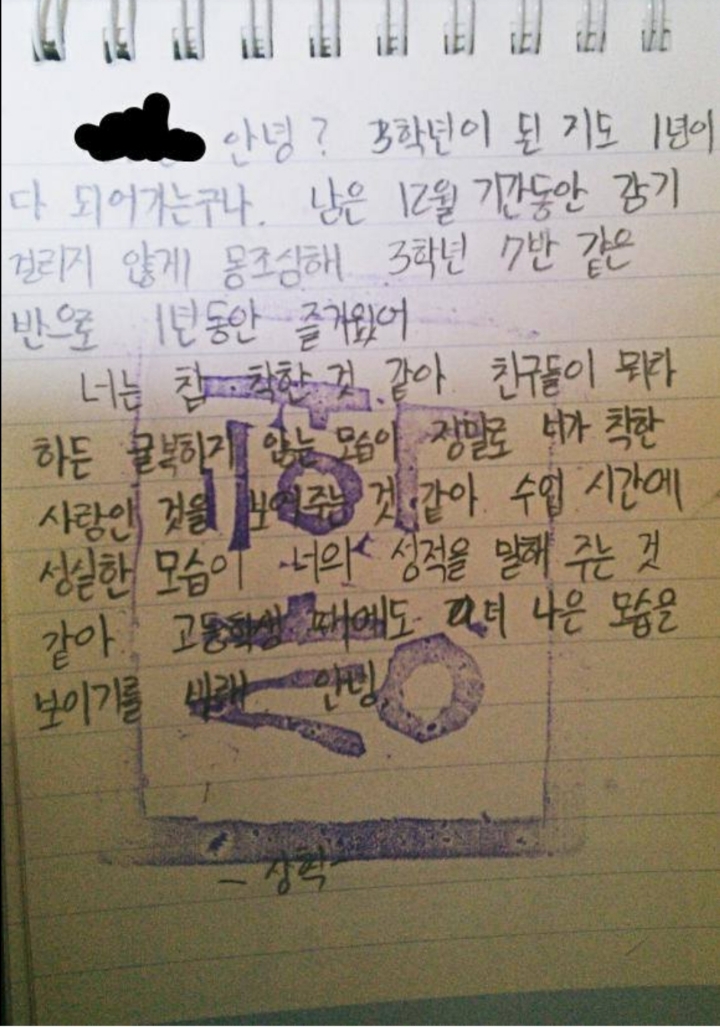 안녕? 3학년이 된 지도 1년이
다 되어가는구나. 남은 12월 기간동안 감기
걸리지 않게 몸조심해 3학년 7반 같은
반으로 1년동안 즐거웠어
너는 참 착한 것 같아 친구들이 뭐라
하든 굴복하지 않는 모습이 정말로 너가 착한
사람인 것을 보여주는 것 같아 수업 시간에
성실한 모습이 너의 성적을 말해 주는 것
같아 고등학생 때에도 더 나은 모습을
보이기를 바래 안녕
- 상혁 -